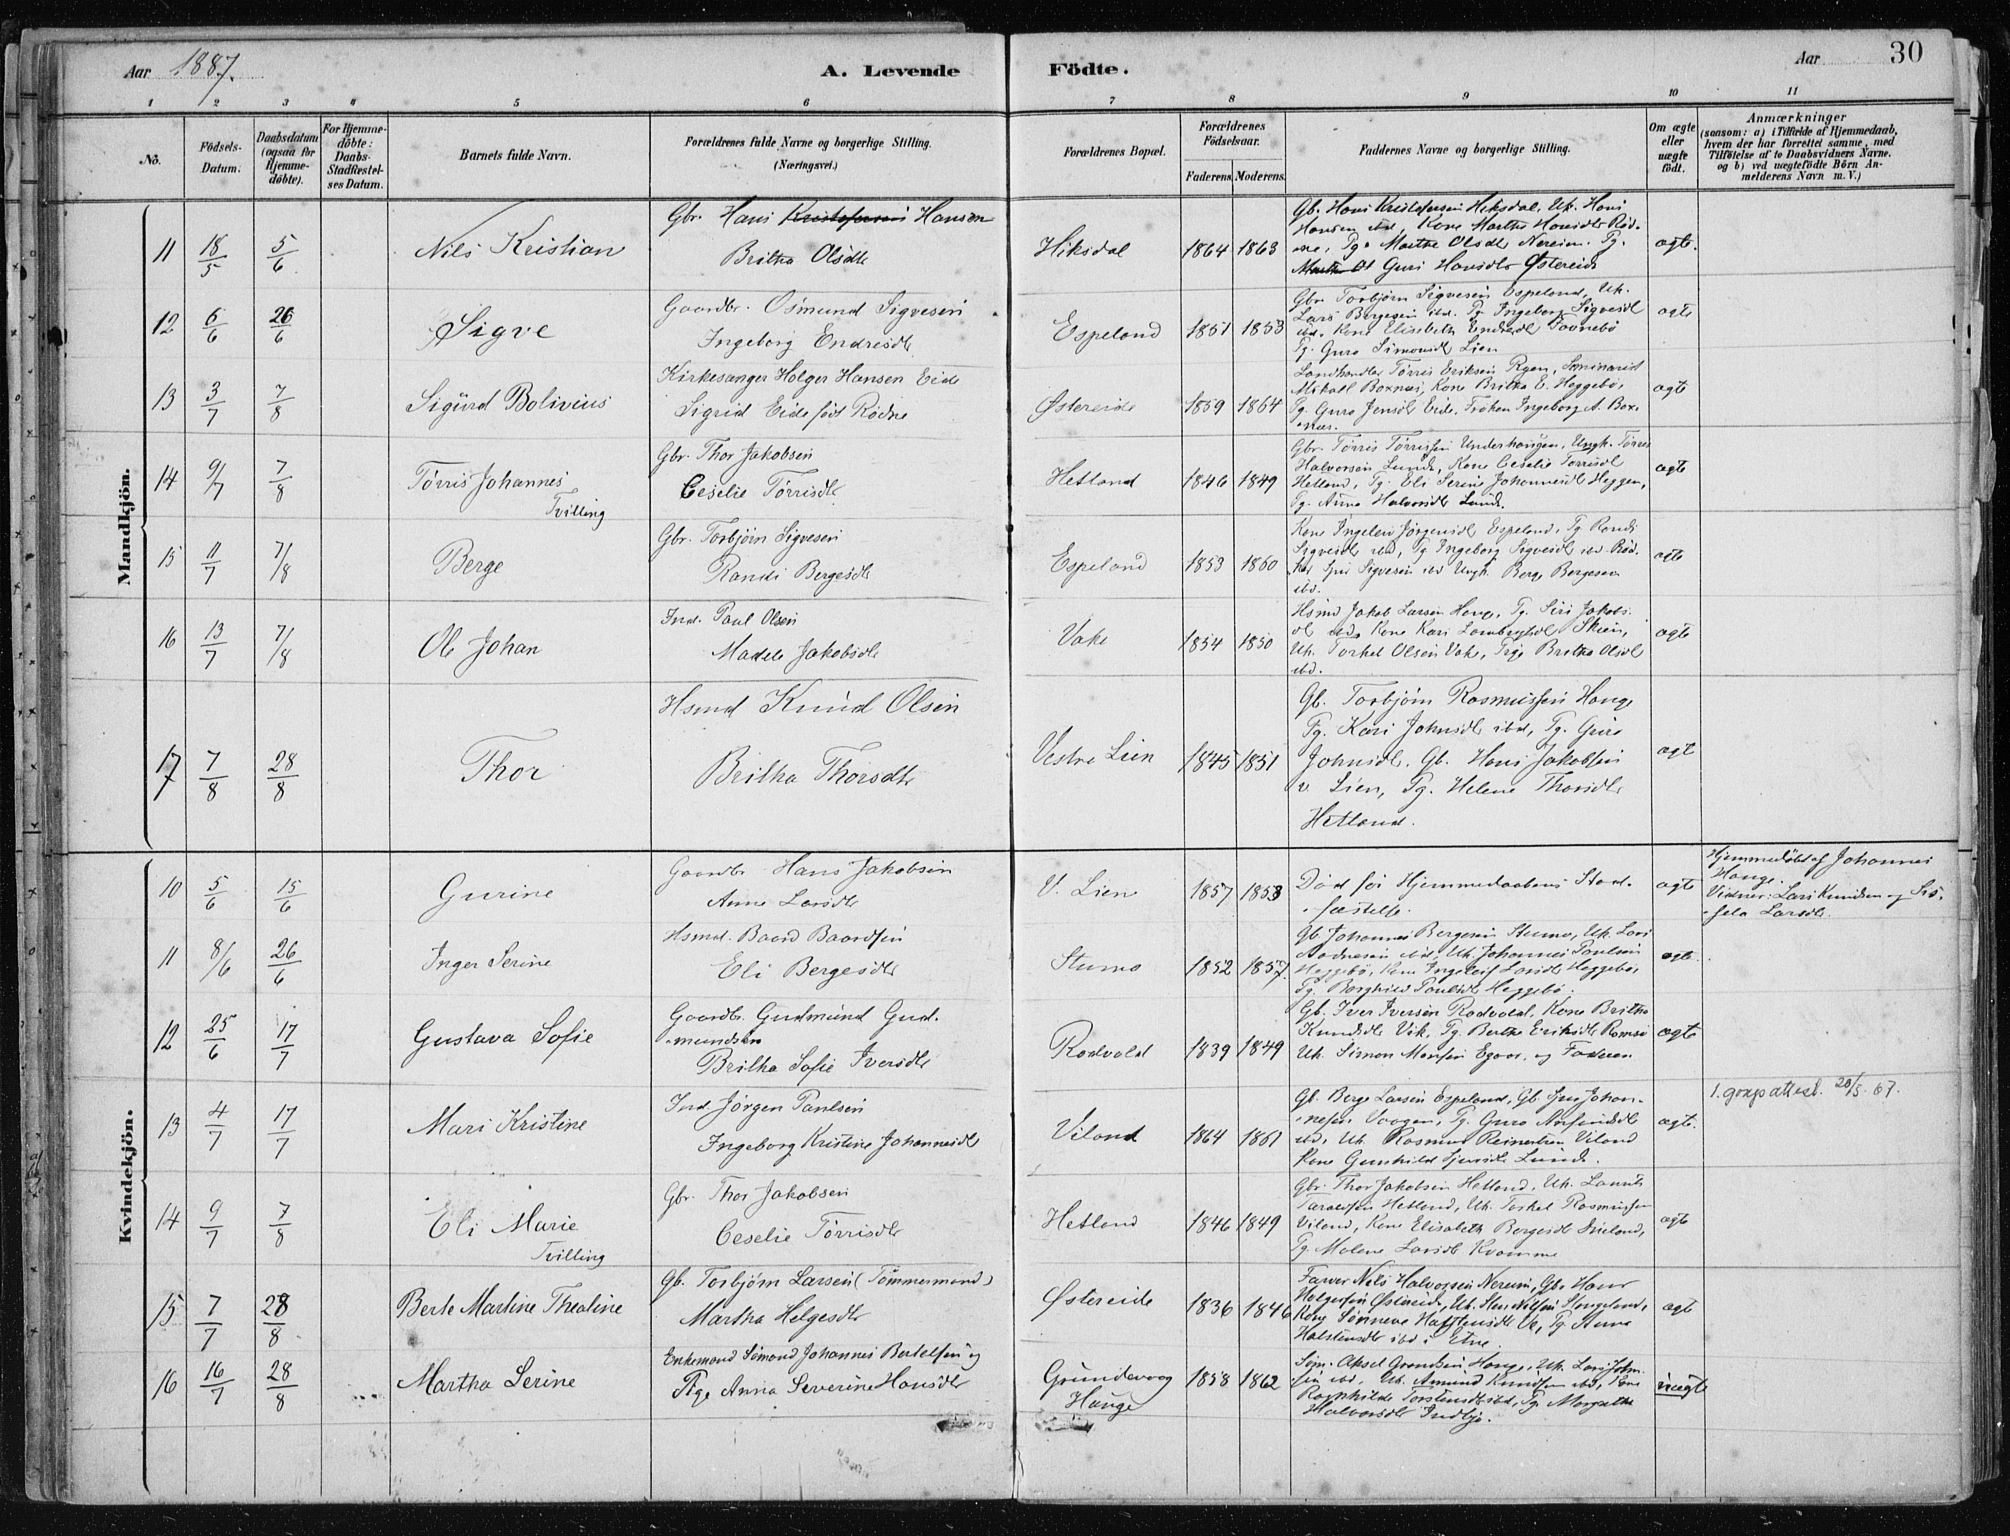 Aar 1887. A. Levende Födte. Aar 30
1 2 3 4 5 6 7 8 9 10 11
No. Födsels-Datum. Daabsdatum (ogsaa for Hjemme-döbte). For Hjemme-döbte: Daabs-Stadfæstel-ses Datum. Barnets fulde Navn. Forældrenes fulde Navne og borgerlige Stilling. (Næringsvei.) Forældrenes Bopæl. Forældrenes Födselsaar. Faderens. Moderens. Faddernes Navne og borgerlige Stilling. Om ægte eller uægte födt. Anmærkninger (saasom: a) i Tilfælde af Hjemmedaab, hvem der har forrettet samme, med Tilföielse af to Daabsvidners Navne, og b) ved uægtefödte Börn An-melderens Navn m. V.)
Mandkjön.
11 18/5 5/6 Nils Kristian Gbr. Hans Kristofersen Hansen
Britha Olsdtr Hiksdal 1864 1863 Gb. Hans Kristofersen Hiksdal, Uk. Hans
Hansen ibd, Kone Martha Hansdtr Rød-
ne, Pg. Marthe Olsdtr Nereim. Pg.
Guri Hansdtr Østereide ægte.
12 6/6 26/6 Sigve Gaardbr. Osmund Sigvesen
Ingeborg Endresdtr Espeland 1851 1853 Gbr. Torbjørn Sigvesen Espeland, Uk.
Lars Bergesen ibd. Pg Ingeborg Sigvesdtr
ibd. Kone Elisabeth Endresdtr
Pg. Guro Simonsdtr Lien ægte
13 3/7 7/8 Sigurd Bolivius Kirkesanger Holger Hansen Eide
Sigrid Eide født Rødne Østereide 1859 1864 Landhandler Tørris Eriksen Rygen, Seminarist
Mikall Boxnes, Kone Britha E. Heggebø,
Pg. Guro Jensdtr Eide, Frøken Ingeborg A. Box-
nes. ægte
14 9/7 7/8 Tørris Johannes
Tvilling Gbr. Thor Jakobsen
Ceselie Tørrisdtr Hetland 1846 1849 Gbr. Tørris Tørrissen Underhaugen, Ungk. Tørres
Halvorsen Lunde, Kone Ceselie Tørrisdtr
Hetland, Pg. Eli Serine Johannesdtr Heggen,
Pg. Anna Halvorsdtr Lunde. ægte
15 11/7 7/8 Berge Gbr. Torbjørn Sigvesen
Randi Bergesdtr Espeland 1853 1860 Kone Ingeleiv Jørgensdtr Espeland, Pg Randi
Sigvesdtr ibd, Pg Ingeborg Sigvesdtr ibd.
Sigvesen ibd Ungk. Berge Bergesen
ibd. ægte
16 13/7 7/8 Ole Johan Ind. Paul Olsen
Madele Jakobsdtr Vake 1854 1850 Hsmd Jakob Larsen Hauge, Pg. Siri Jakobs-
dtr ibd, Kone Kari Skien,
Uk. Torkel Olsen Vake, Pige Britha Olsdtr
ibd. ægte
17 7/8 28/8 Thor Hsmd Knud Olsen
Britha Thorsdtr Vestre Lien 1845 1851 Gb. Torbjørn Rasmussen Hauge
Pg. Kari Johnsdtr ibd, Pg. Guro
Johnsdtr. Gb. Hans Jakobsen
v Lien, Pg. Helene Thorsdtr
Hetland. ægt
Kvindekjön.
10 5/6 15/6 Gurine Gaardbr. Hans Jakobsen
Anne Larsdtr V. Lien 1857 1853 Død før Hjemmedaabens Stad-
fæstelse. ægte Hjemmedøbt af Johannes
Hauge.
Vidner: Lars Knudsen og Si-
sela Larsdtr.
11 8/6 26/6 Inger Serine Hsmd. Baard Baardsen
Eli Bergesdtr Stumo 1852 1857. Gb. Johannes Bergesen Stumo, Uk. Lars
ibd. Uk. Johannes Paulsen
Heggebø, Kone Ingeleif Larsdtr Heggebø,
Pg. Borghild Paulsdtr Heggebø. ægte.
12 25/6 17/7 Gustava Sofie Gaardbr. Gudmund Gud-
mundsen
Britha Sofie Iversdtr Rodvald 1839 1849 Gb. Iver Iversen Rodvald, Kone Britha
Knudsdtr Vik, Pg. Berthe Eriksdtr
Uk. Simon Monsen og Faderen ægte
13 4/7 17/7 Mari Kristine Ind Jørgen Paulsen
Ingeborg Kristine Johannesdtr Viland 1864 1861 Gb. Berge Larsen Espeland, Gb Johan-
nesen Vaagen, Pg. Guro
ibd. Uk. Rasmus Reinertsen Viland
Kone Gunhild Sjursdtr Lunde. ægte. 1. gangs attest. 20/5. 67.
14 9/7 7/8 Eli Marie
Tvilling Gbr. Thor Jakobsen
Ceselie Tørrisdtr Hetland 1846 1849 Gbr. Thor Jakobsen Hetland, Uk. Laurits
Hetland, Uk. Torkel Rasmussen
Viland, Kone Elisabeth Bergesdtr
Pg. Malene Larsdtr Kvamme ægte
15 7/7 28/8 Berte Martine Thealine Gb. Torbjørn Larsen (Tømmermand)
Martha Helgesdtr Østereide 1836 1846 Farver Nils Halvorsen Nereim, Gb. Hans
Holgersen Østereide, Uk. Sten Nilsen
Kone Sønneva Ve, Pg. Anna
Halstensdtr ibd i Etne. ægte
16 16/7 28/8 Martha Serine Enkemand Sømand Johannes Bertelsen og
Pige Anna Severine Hansdtr Grindevoog
Hauge 1858 1862 Søm. Aksel Hauge, Uk. Lars
ibd, Uk. Amund Knudsen ibd, Kone
Ragnhilde Torstensdtr ibd, Pg. Margrethe
Halvorsdtr Indbjo. uægte